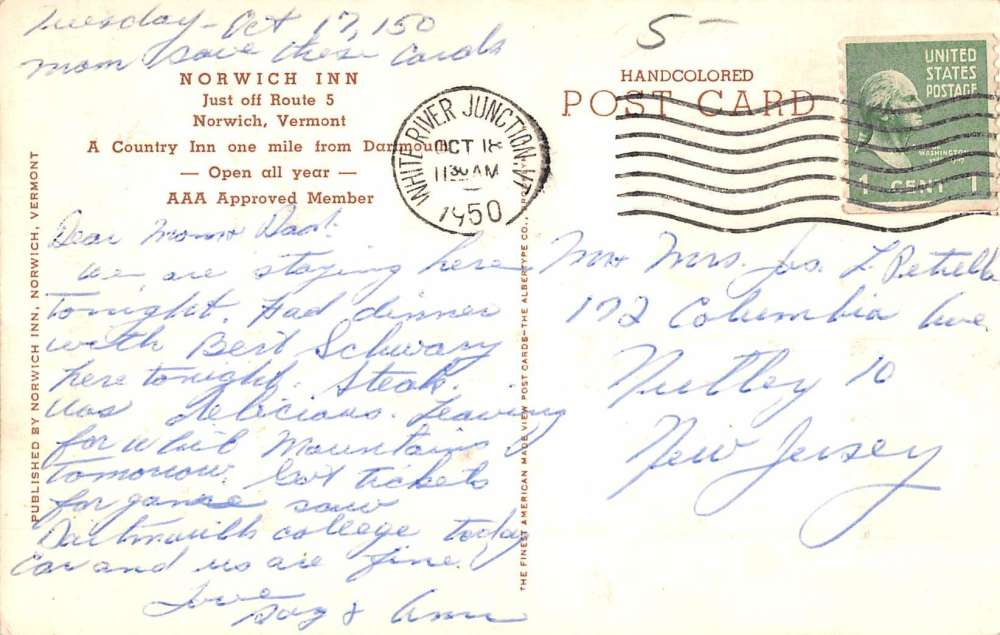 Tuesday - Oct 17, 150
Mom save these cards
5-
NORWICH INN
Just off Route 5
Norwich, Vermont
A Country Inn one mile from Dartmouth
— Open all year —
AAA Approved Member
PUBLISHED BY NORWICH INN, NORWICH, VERMONT
Dear Mom & Dad:
We are staying here
tonight. Had dinner
with Bert Schwarz
here tonight. Steak
was delicious. Leaving
for White Mountains
tomorrow. Got tickets
for game saw
Dartmouth college today
Car and us are fine.
Love
& Ann
THE FINEST AMERICAN MADE VIEW POST CARDS—THE ALBERTYPE CO.,
HANDCOLORED
POST CARD
WHITE RIVER JUNCTION, VT.
OCT 18
11 30 AM
1950
UNITED
STATES
POSTAGE
WASHINGTON
1 CENT 1
Mr Mrs. Jos. L Petrella
172 Columbia Ave.
Nutley 10
New Jersey